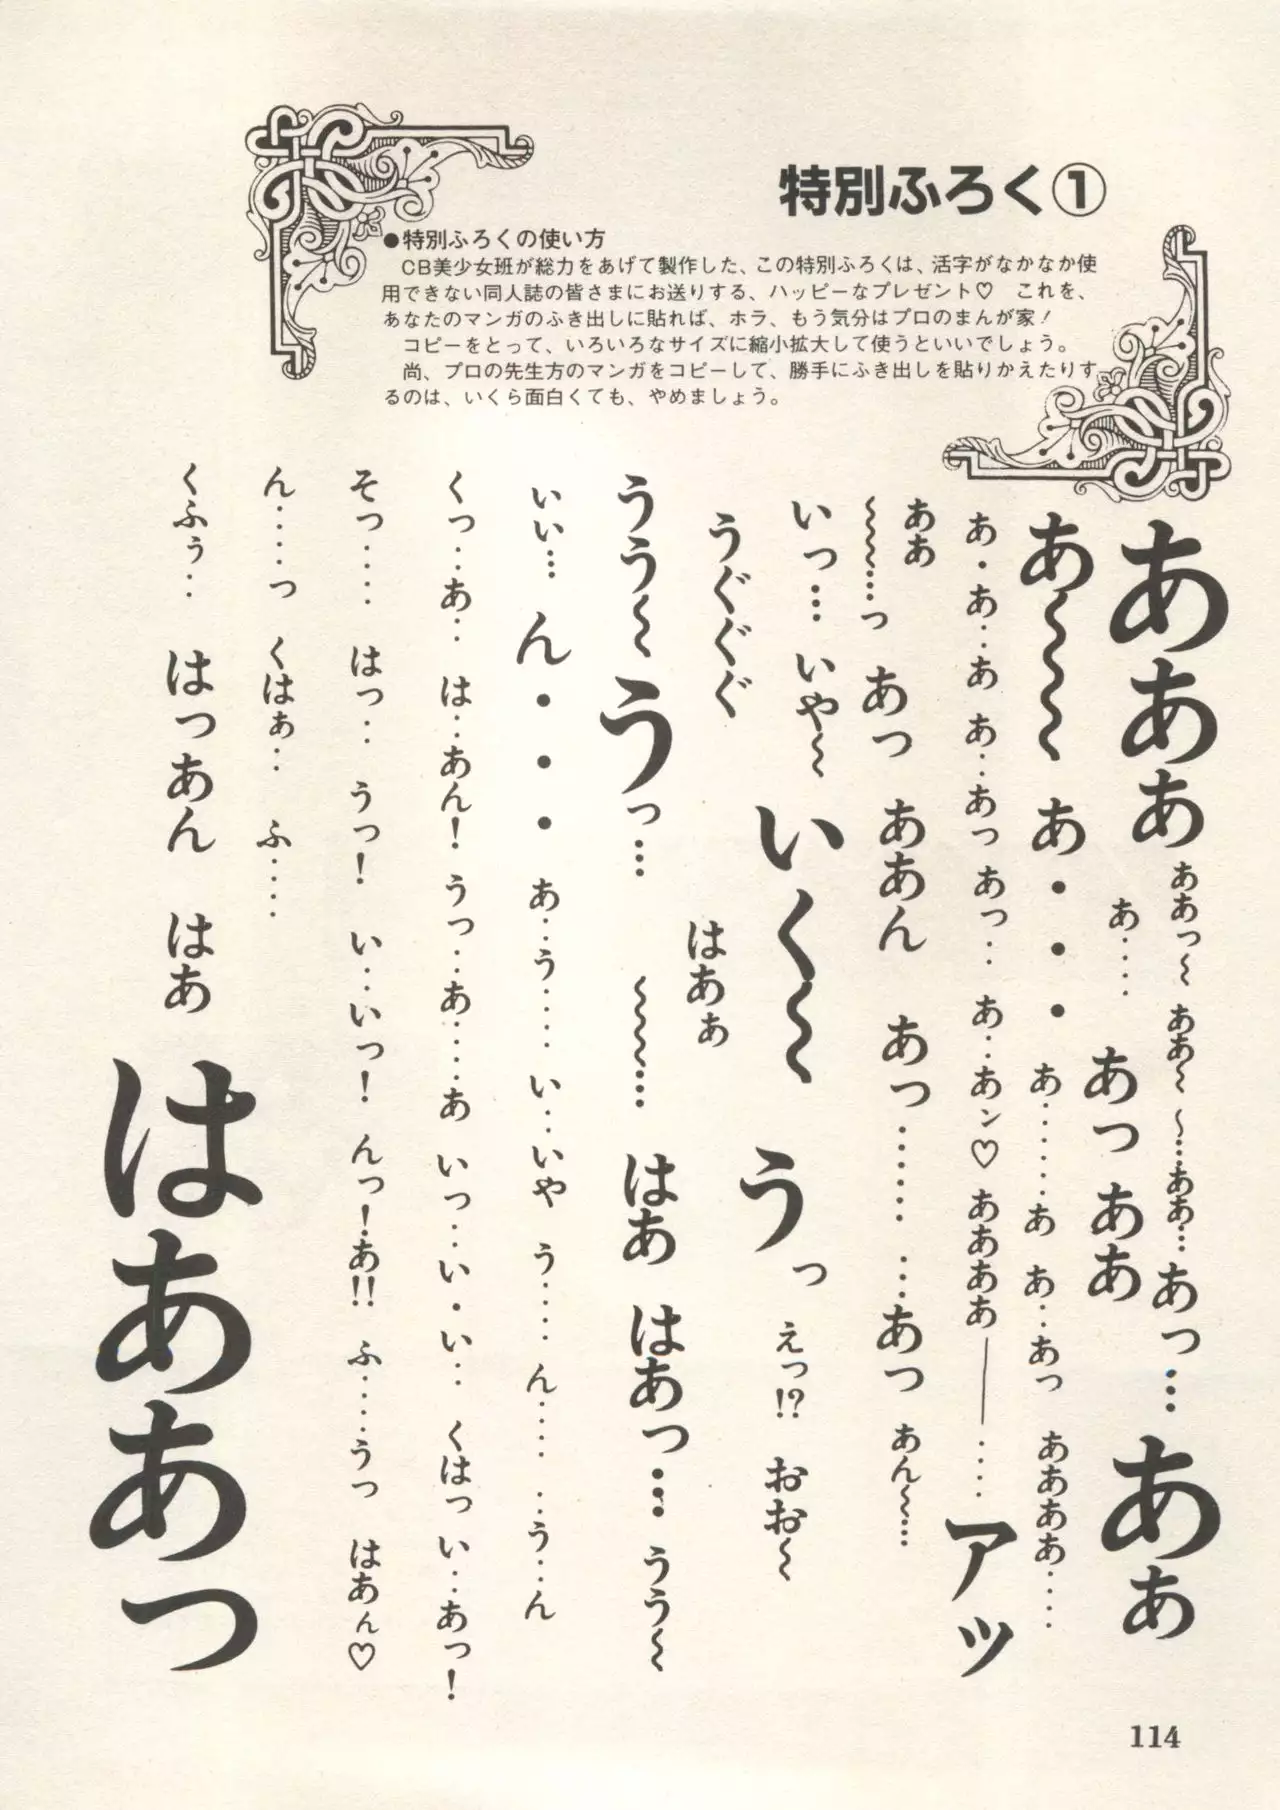 特別ふろく①
●特別ふろくの使い方
CB美少女班が総力をあげて製作した、この特別ふろくは、活字がなかなか使
用できない同人誌の皆さまにお送りする、ハッピーなプレゼント♡　これを、
あなたのマンガのふき出しに貼れば、ホラ、もう気分はプロのまんが家！
コピーをとって、いろいろなサイズに縮小拡大して使うといいでしょう。
尚、プロの先生方のマンガをコピーして、勝手にふき出しを貼りかえたりす
るのは、いくら面白くても、やめましょう。
あああ　ああっ〜　ああ〜　〜…ああ…　あっ…　あぁ
あ‥‥　あっ　ああ
あ〜〜〜　あ・・・　あ‥‥‥あ　あ‥あっ　ああああ‥‥
あ・あ‥あ　あ‥あっ　あっ‥　あ‥あン♡　ああああ――‥‥　アッ
ああ
〜〜…っ　あっ　ああん　あっ‥‥‥　…あっ　あん〜…
いっ…　いや〜　いく〜　うっ　えっ!?　おお〜
うぐぐぐ　はあぁ
うう〜　うっ…　〜〜…　はあ　はあっ…　うう〜
いい…　ん・・・　あ‥う‥‥　い‥いや　う‥‥　ん‥‥　‥う‥ん
くっ‥あ‥　は‥あん！　うっ‥あ‥‥あ　いっ‥い・い‥　くはっ　い‥あっ！
そっ‥‥　はっ‥　うっ！　い‥いっ！　んっ！あ!!　ふ‥‥うっ　はあん♡
ん‥‥っ　くはぁ‥　ふ‥‥
くふぅ‥　はっあん　はあ　はああっ
114